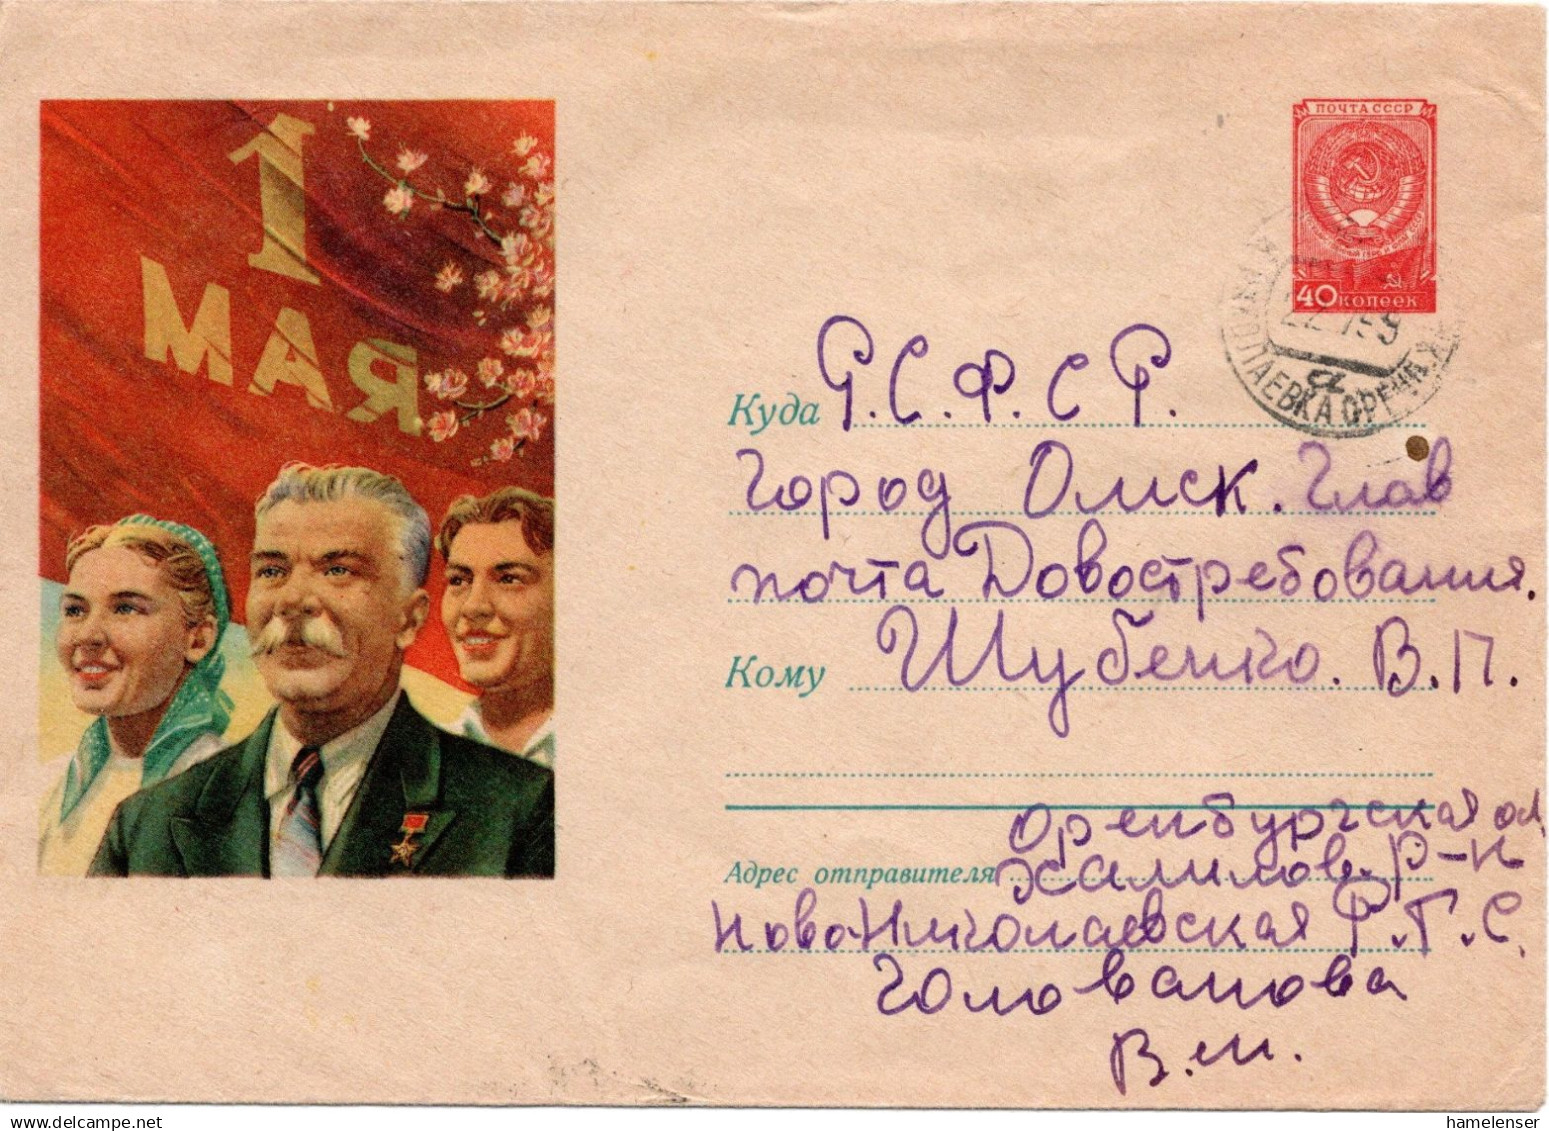 1
МАЯ
ПОЧТА СССР
40 КОПЕЕК
Куда Р.С.Ф.С.Р.
город Омск. Глав
почта Довостребования.
Кому Шубенко. В.П.
Оренбургская ол
Адрес отправителя Халилов. Р-н
Ново-Николаевская Р.Т.С.
Голованова
В.И.
hamelenser